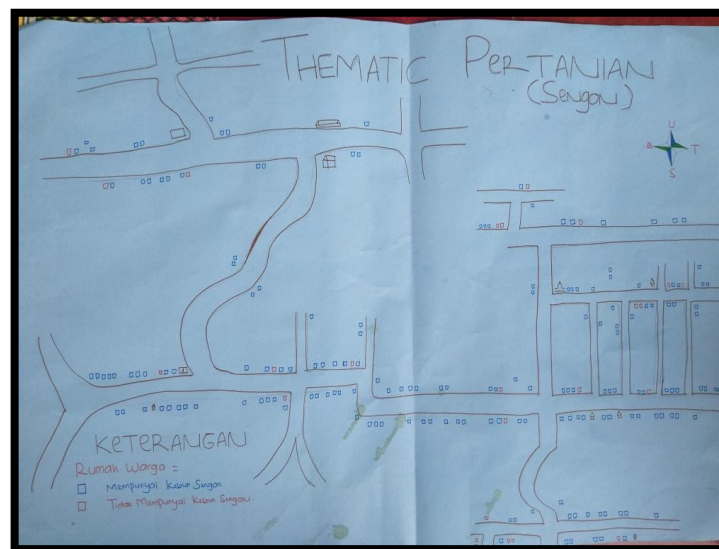 THEMATIC PERTANIAN
(Sengon)
U
B T
S
KETERANGAN
Rumah Warga =
Mempunyai Kebun Sengon
Tidak Mempunyai Kebun Sengon.